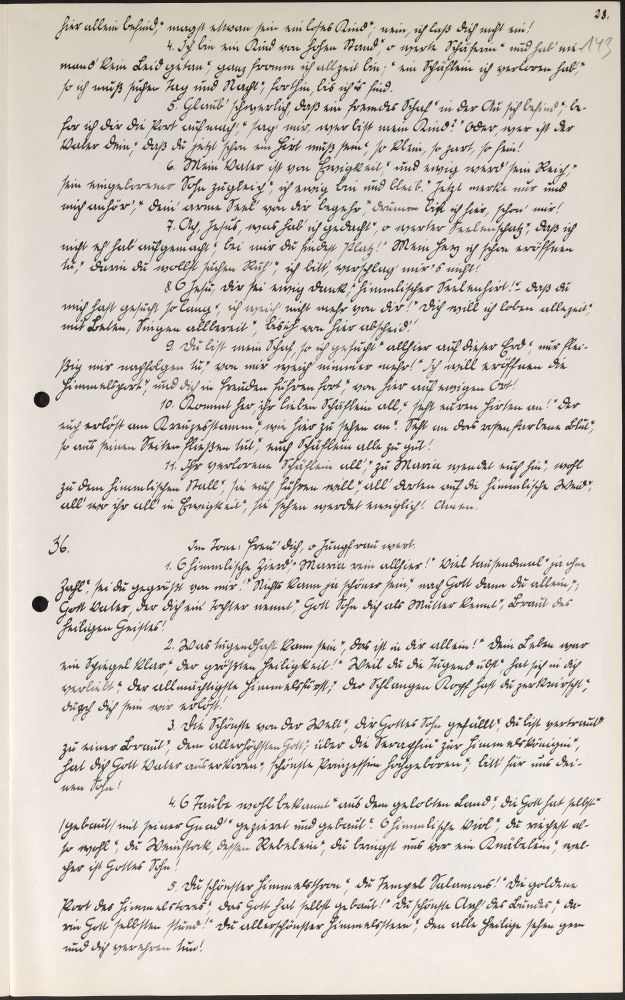 28.
143
hier allein befind," magst etwan sein ein loses Kind", nein, ich laß dich nicht ein!
4. Ich bin ein Kind von hohem Stand," o werte Schäferin" und hab' nie-
mand kein Leid getan", ganz fromm ich allzeit bin;" ein Schäflein ich verloren hab,"
so ich muß suchen Tag und Nacht", forthin, bis ich's find.
5. Glaub' schwerlich, daß ein fremdes Schaf" in der Au sich befind," be-
vor ich dir die Port aufmach'," sag' mir, wer bist mein Kind?" Oder, wer ist der
Vater dein," daß du jetzt schon ein Hirt muß sein" so klein, so zart, so fein!
6. Mein Vater ist von Ewigkeit," und ewig werd' sein Reich,"
sein eingeborener Sohn zugleich", ich ewig bin und bleib." Jetzt merke nur und
mich anhör'," dein' arme Seel von dir begehr," drumm bitt ich hier, schon' mir!
7. Ach, Jesus, was hab' ich gedacht", o werter Seelenschatz," daß ich
nicht eh' hab' aufgemacht", bei mir du findest Platz!" Mein Herz ich schon eröffnen
tu," darin du wollst suchen Ruh'", ich bitt, verschlag mir's nicht!
8. O Jesu, dir sei ewig Dank," himmlischer Seelenhirt!" daß du
mich hast gesucht so lang", ich weich' nicht mehr von dir!" Dich will ich loben allezeit",
mit Beten, Singen allbereit", bis ich von hier abscheid'!
9. Du bist mein Schaf, so ich gesucht" allhier auf dieser Erd," nur flei-
ßig mir nachfolgen tu," von mir weich' nimmer mehr!" Ich will eröffnen die
Himmelsport", und dich in Freuden führen fort," von hier auf ewigen Ort!
10. Kommt her ihr lieben Schäflein all," seht euren Hirten an!" Der
euch erlöst am Kreuzesstamm," wie hier zu sehen an". Seht an das rosenfarbene Blut",
so aus seinen Seiten fließen tut", euch Schäflein alle zu gut!
11. Ihr verlorene Schäflein all'," zu Maria wendet euch hin", wohl
zu dem himmlischen Stall", sie euch führen will" all' dorten auf die himmlische Weid",
all' wo ihr all' in Ewigkeit", sie sehen werdet ewiglich! Amen.
36.
Im Tone: Freu' dich, o Jungfrau wert.
1. O himmlische Zierd" Maria rein allhier!" Viel tausendmal" ja ohne
Zahl", sei du gegrüßt von mir!" Nichts kann ja schöner sein," nach Gott dann du allein,"
Gott Vater, der dich ein' Tochter nennt," Gott Sohn dich als Mutter kennt", Braut des
heiligen Geistes!
2. Was tugendhaft kann sein", das ist in dir allein!" Dein Leben war
ein Spiegel klar," der größten Heiligkeit!" Weil du die Tugend übst", hat sich in dich
verliebt," der allmächtigste Himmelsfürst," der Schlangen Kopf hast du zerknirscht",
durch dich sein wir erlöst!
3. Die Schönste von der Welt", die Gottes Sohn gefällt", du bist vertraut"
zu einer Braut", dem allerhöchsten Gott," über die Seraphin" zur Himmelskönigin",
hat dich Gott Vater auserkoren", schönste Prinzessin hochgeboren"; bitt' für uns dei-
nen Sohn!
4. O Taube wohl bekannt" aus dem gelobten Land", die Gott hat selbst"
/gebaut/ mit seiner Gnad'" gezieret und gebaut". O himmlische Viol", du riechest al-
so wohl", du Weinstock, dessen Rebelein", du bringst uns vor ein Knäbelein", wel-
cher ist Gottes Sohn!
5. Du schönster Himmelsthron", du Tempel Salamons!" Du goldene
Port des Himmelstores", das Gott hat selbst gebaut!" Du schönste Arch' des Bundes", da-
rin Gott selbsten stund!" Du allerschönster Himmelsstern", den alle Heilige sehen gern
und dich verehren tun!